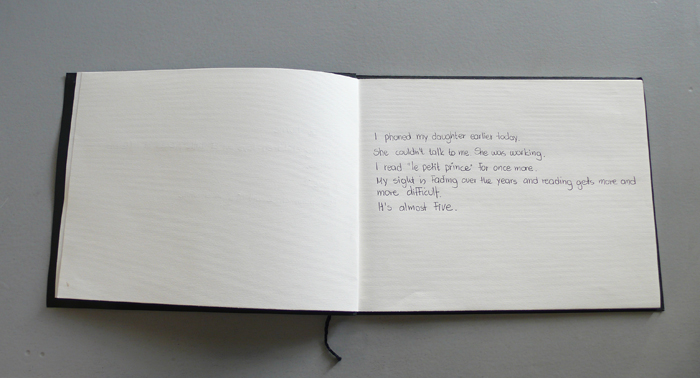 I phoned my daughter earlier today.
She couldn't talk to me. She was working.
I read "le petit prince" for once more.
My sight is fading over the years and reading gets more and
more difficult.
It's almost five.